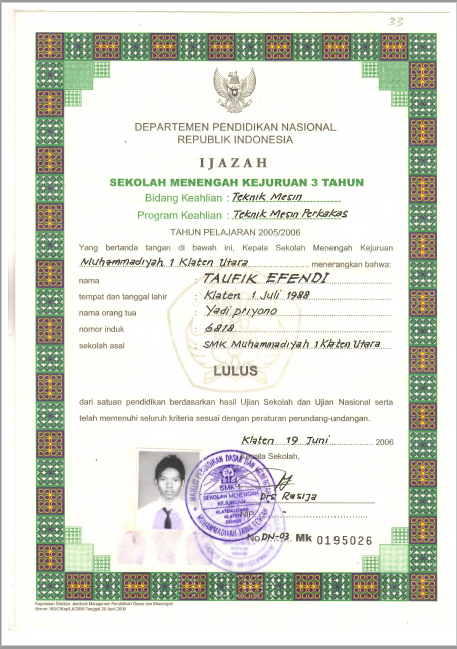 33
DEPARTEMEN PENDIDIKAN NASIONAL
REPUBLIK INDONESIA
IJAZAH
SEKOLAH MENENGAH KEJURUAN 3 TAHUN
Bidang Keahlian : Teknik Mesin
Program Keahlian : Teknik Mesin Perkakas
TAHUN PELAJARAN 2005/2006
Yang bertanda tangan di bawah ini, Kepala Sekolah Menengah Kejuruan
Muhammadiyah 1 Klaten Utara menerangkan bahwa:
nama : TAUFIK EFENDI
tempat dan tanggal lahir : Klaten 1 Juli 1988
nama orang tua : Yadi priyono
nomor induk : 6818
sekolah asal : SMK Muhammadiyah 1 Klaten Utara
LULUS
dari satuan pendidikan berdasarkan hasil Ujian Sekolah dan Ujian Nasional serta
telah memenuhi seluruh kriteria sesuai dengan peraturan perundang-undangan.
Klaten 19 Juni 2006
Kepala Sekolah,
MAJLIS PENDIDIKAN DASAR DAN MENENGAH
SMK
SEKOLAH MENENGAH
KEJURUAN
KLATEN UTARA
KLATEN
MUHAMMADIYAH JAWA TENGAH
Drs Rasija
NIP. -
No DN-03 Mk 0195026
Keputusan Direktur Jenderal Manajemen Pendidikan Dasar dan Menengah
Tanggal 20 April 2006